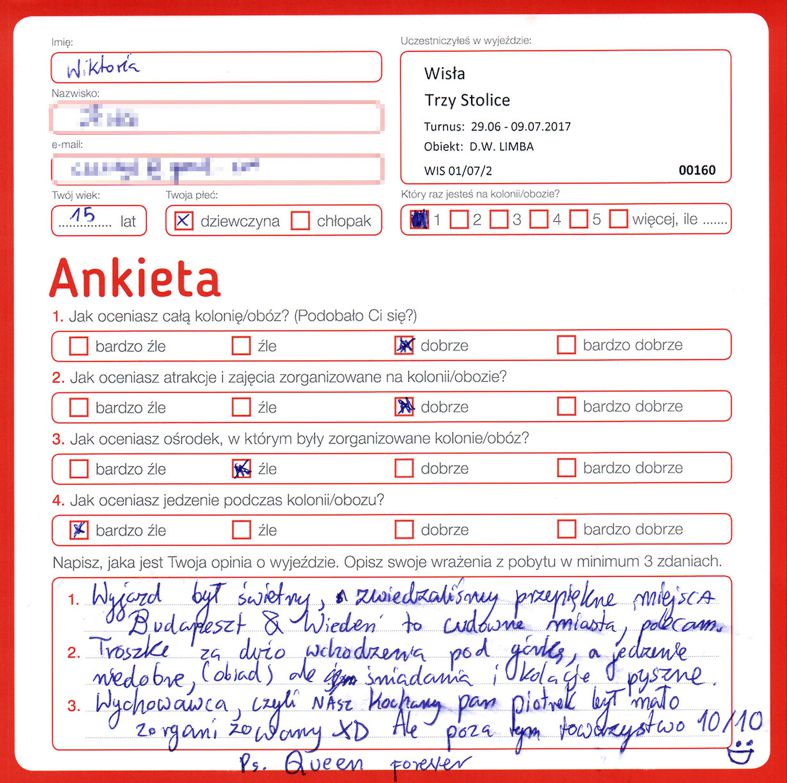 Imię:
Wiktoria
Nazwisko:
e-mail:
Uczestniczyłeś w wyjeździe:
Wisła
Trzy Stolice
Turnus: 29.06 - 09.07.2017
Obiekt: D.W. LIMBA
WIS 01/07/2 00160
Twój wiek:
15 lat
Twoja płeć:
dziewczyna chłopak
Który raz jesteś na kolonii/obozie?
1 2 3 4 5 więcej, ile .......
Ankieta
1. Jak oceniasz całą kolonię/obóz? (Podobało Ci się?)
bardzo źle źle dobrze bardzo dobrze
2. Jak oceniasz atrakcje i zajęcia zorganizowane na kolonii/obozie?
bardzo źle źle dobrze bardzo dobrze
3. Jak oceniasz ośrodek, w którym były zorganizowane kolonie/obóz?
bardzo źle źle dobrze bardzo dobrze
4. Jak oceniasz jedzenie podczas kolonii/obozu?
bardzo źle źle dobrze bardzo dobrze
Napisz, jaka jest Twoja opinia o wyjeździe. Opisz swoje wrażenia z pobytu w minimum 3 zdaniach.
1. Wyjazd był świetny, zwiedzaliśmy przepiękne miejsca
Budapeszt & Wiedeń to cudowne miasta, polecam.
2. Troszkę za dużo wchodzenia pod górkę, a jedzenie
niedobre, (obiad) ale śniadania i kolacje pyszne.
3. Wychowawca, czyli NASZ kochany pan piotrek był mało
zorganizowany XD Ale poza tym towarzystwo 10/10
Ps. Queen forever